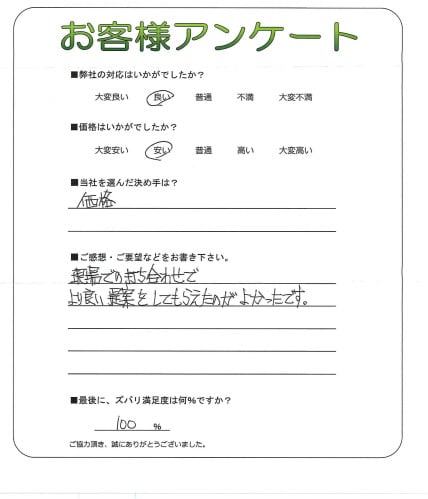 お客様アンケート
■弊社の対応はいかがでしたか？
大変良い 良い 普通 不満 大変不満
■価格はいかがでしたか？
大変安い 安い 普通 高い 大変高い
■当社を選んだ決め手は？
価格
■ご感想・ご要望などをお書き下さい。
現場での打ち合わせで
より良い提案をしてもらえたのがよかったです。
■最後に、ズバリ満足度は何％ですか？
100 ％
ご協力頂き、誠にありがとうございました。